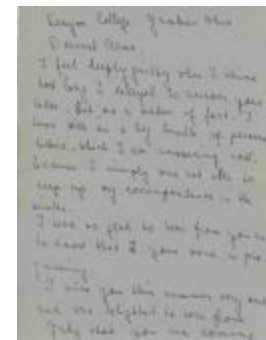 Kenyon College Gambier Ohio
Dearest
I feel deeply guilty when I think
how long I delayed to answer your
letter. But as a matter of fact, I
have with me a big bundle of personal
letters which I am answering now,
because I simply was not able to
keep up my correspondence in the
I was so glad to hear from you and
to know that your work is
I miss you this summer very much
and was delighted to hear from
that you are coming